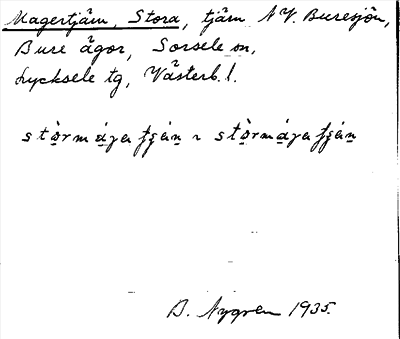 Magertjärn, Stora, tjärn N.V. Buresjön,
Bure ägor, Sorsele sn,
Lycksele tg, Västerb. l.
B. Nygren 1935.